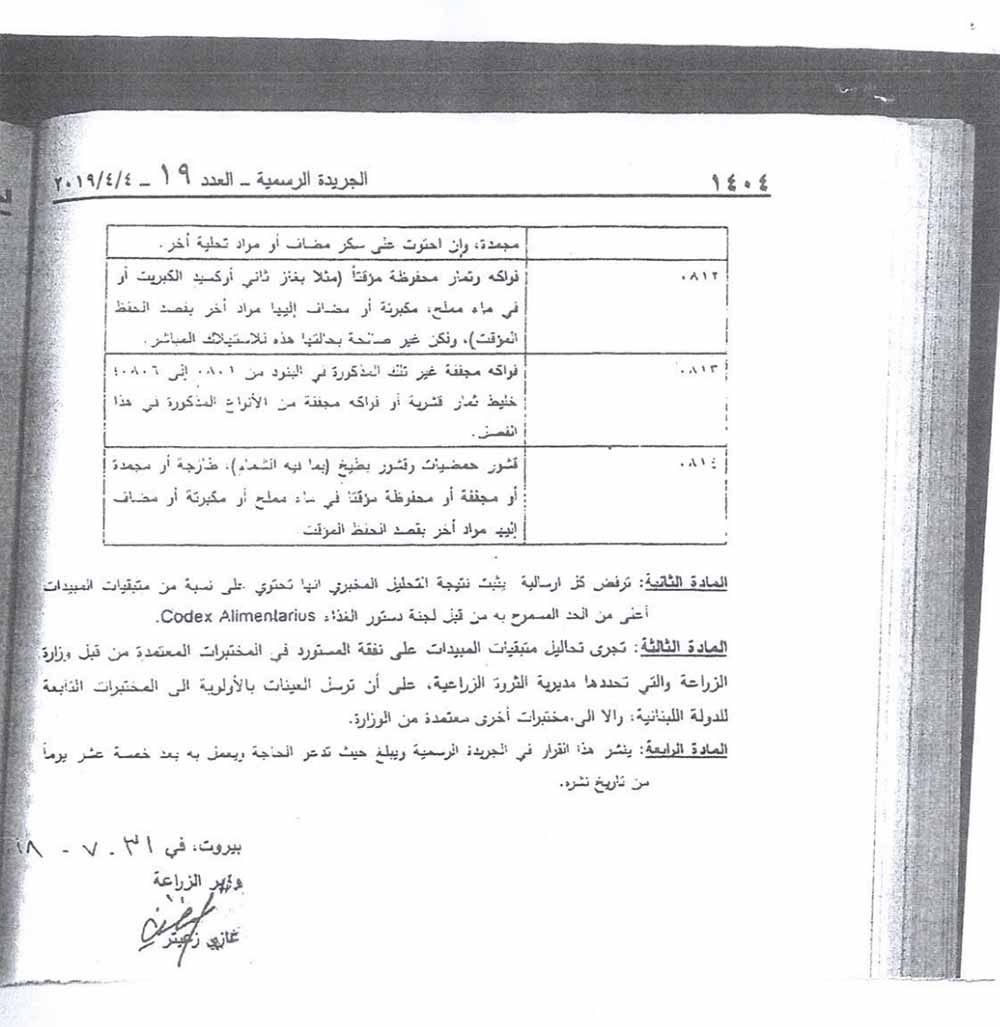 ١٤٠٤
الجريدة الرسمية – العدد ١٩ – ٢٠١٩/٤/٤
مجمدة، وإن احتوت على سكر مضاف أو مواد تحلية أخر.
٠٨١٢
فواكه وثمار محفوظة مؤقتاً (مثلا بغاز ثاني أوكسيد الكبريت أو
في ماء مملح، مكبرتة أو مضاف إليها مواد أخر بقصد الحفظ
المؤقت)، ولكن غير صالحة بحالتها هذه للاستهلاك المباشر.
٠٨١٣
فواكه مجففة غير تلك المذكورة في البنود من ٠٨٠١ إلى ٠٨٠٦؛
خليط ثمار قشرية أو فواكه مجففة من الأنواع المذكورة في هذا
الفصل.
٠٨١٤
قشور حمضيات وقشور بطيخ (بما فيه الشمام)، طازجة أو مجمدة
أو مجففة أو محفوظة مؤقتا في ماء مملح أو مكبرتة أو مضاف
إليها مواد أخر بقصد الحفظ المؤقت
المادة الثانية: ترفض كل ارسالية يثبت نتيجة التحليل المخبري انها تحتوي على نسبة من متبقيات المبيدات
أعلى من الحد المسموح به من قبل لجنة دستور الغذاء Codex Alimentarius.
المادة الثالثة: تجرى تحاليل متبقيات المبيدات على نفقة المستورد في المختبرات المعتمدة من قبل وزارة
الزراعة والتي تحددها مديرية الثروة الزراعية، على أن ترسل العينات بالأولوية الى المختبرات التابعة
للدولة اللبنانية، والا الى مختبرات أخرى معتمدة من الوزارة.
المادة الرابعة: ينشر هذا القرار في الجريدة الرسمية ويبلغ حيث تدعو الحاجة ويعمل به بعد خمسة عشر يوماً
من تاريخ نشره.
بيروت، في ٣١ - ٧ -
وزير الزراعة
غازي زعيتر